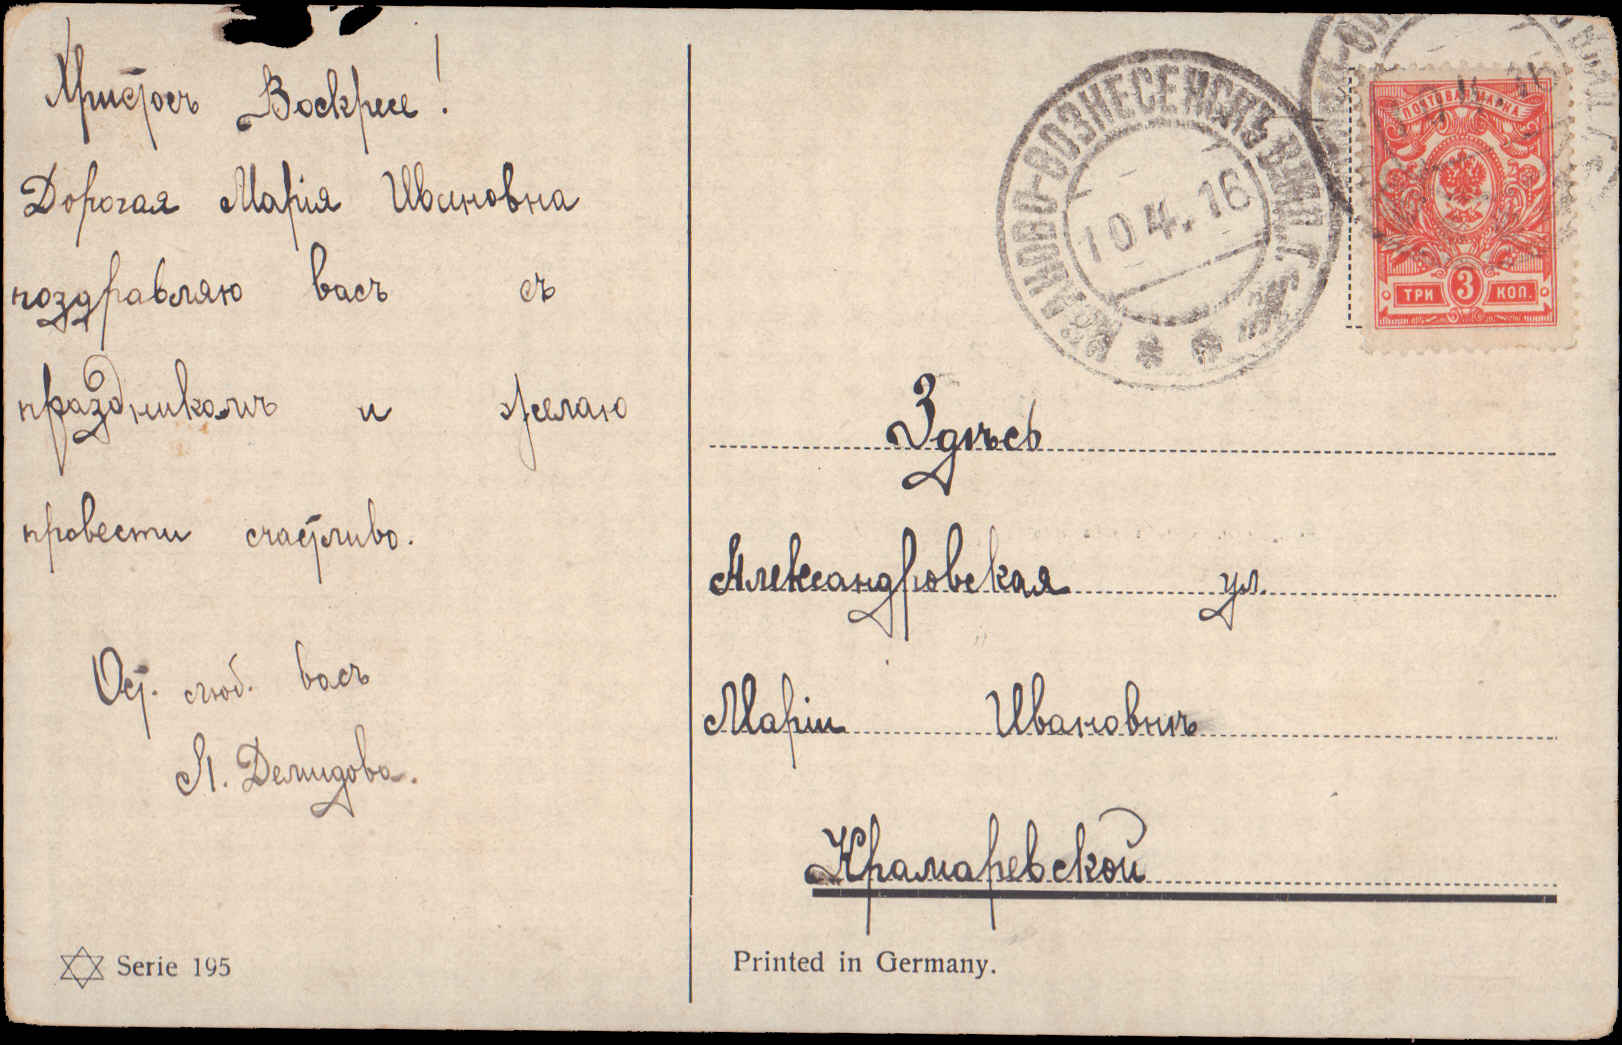 Христосъ Воскресе!
Дорогая Марія Ивановна
поздравляю васъ съ
праздникомъ и желаю
провести счастливо.
Ост. люб. васъ
Л. Демидова.
Serie 195
ИВАНОВО-ВОЗНЕСЕНСКЪ ВЛАД. Г.
10.4.16
ПОЧТОВАЯ МАРКА
ТРИ 3 КОП.
Здѣсь
Александровская ул.
Маріи Ивановнѣ
Крамаревской
Printed in Germany.